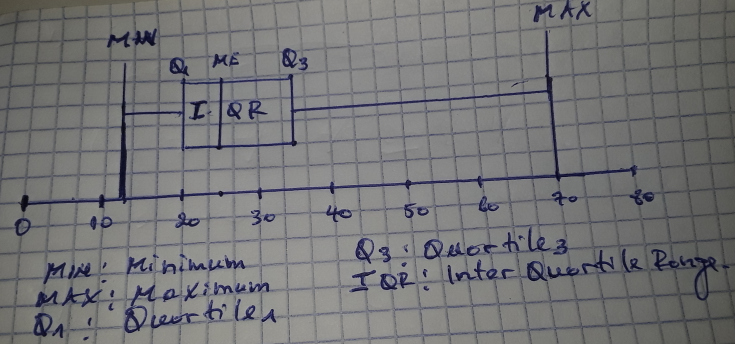 MAX
MIN
Q1 ME Q3
I QR
0 10 20 30 40 50 60 70 80
MIN: Minimum
MAX: Maximum
Q1: Quartile1
Q3: Quartile3
IQR: Inter Quartile Range.